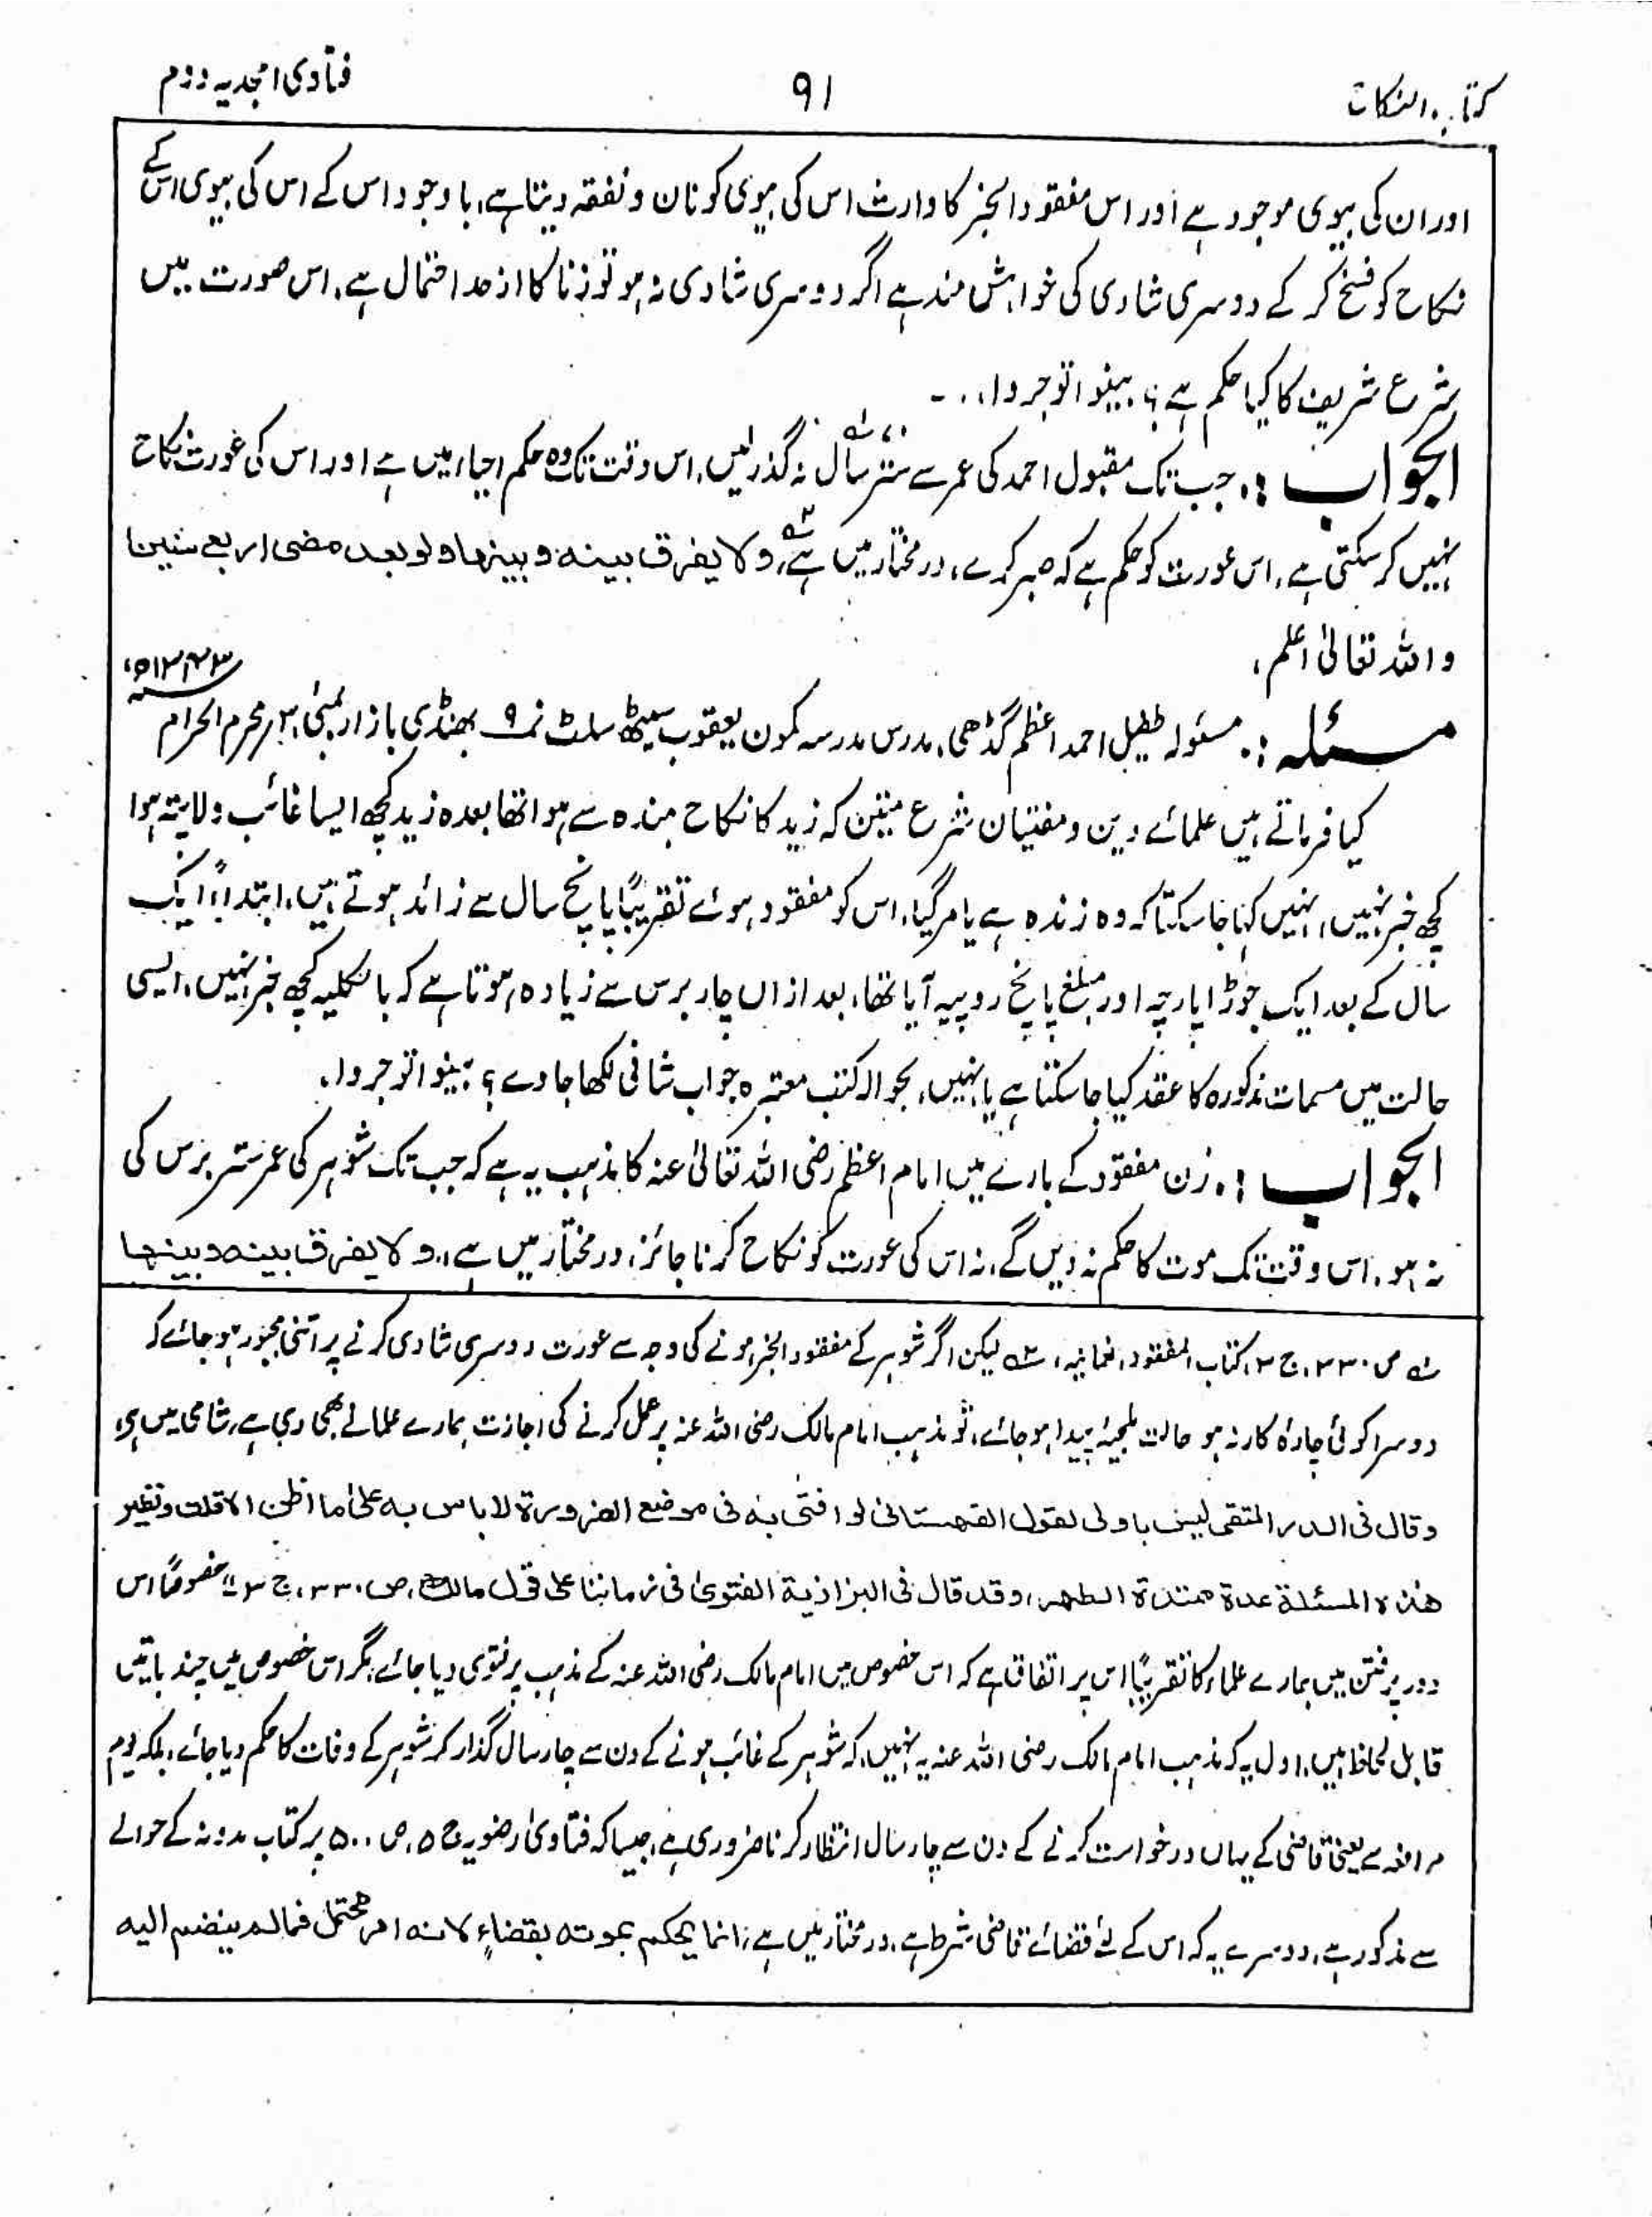 کتاب النکاح
۹۱
فتاوی امجدیہ دوم
اور ان کی بیوی موجود ہے اور اس مفقود الخبر کا وارث اس کی بیوی کو نان و نفقہ دیتا ہے، با وجود اس کے اس کی بیوی اس کے
نکاح کو فسخ کر کے دوسری شادی کی خواہش مند ہے اگر دوسری شادی نہ ہو تو زنا کا از حد احتمال ہے، اس صورت میں
شرع شریف کا کیا حکم ہے؟ بینوا توجروا...
الجواب :۔ جب تک مقبول احمد کی عمر سے ستر سال نہ گذر لیں، اس وقت تک وہ حکم احیاء میں ہے اور اس کی عورت نکاح
نہیں کر سکتی ہے، اس عورت کو حکم ہے کہ صبر کرے، در مختار میں ہے، ولا یفرق بینہ و بینہا ولو بعد مضی اربع سنین
واللہ تعالیٰ اعلم،
مسئلہ :۔ مسئولہ طفیل احمد اعظم گڈھی، مدرس مدرسہ کمون یعقوب سیٹھ سلٹ نمبر ۹ بھنڈی بازار بمبئی ۳؍ محرم الحرام ۱۳۴۳ھ
کیا فرماتے ہیں علمائے دین و مفتیان شرع متین کہ زید کا نکاح ہندہ سے ہوا تھا بعدہ زید کچھ ایسا غائب ولاپتہ ہوا
کچھ خبر نہیں، نہیں کہا جا سکتا کہ وہ زندہ ہے یا مر گیا، اس کو مفقود ہوئے تقریبًا پانچ سال سے زائد ہوتے ہیں، ابتداءً ایک
سال کے بعد ایک جوڑا پارچہ اور مبلغ پانچ روپیہ آیا تھا، بعد ازاں چار برس سے زیادہ ہوتا ہے کہ بالکلیہ کچھ خبر نہیں، ایسی
حالت میں مسمات مذکورہ کا عقد کیا جا سکتا ہے یا نہیں، بحوالہ کتب معتبرہ جواب شافی لکھا جاوے؟ بینوا توجروا،
الجواب :۔ زن مفقود کے بارے میں امام اعظم رضی اللہ تعالیٰ عنہ کا مذہب یہ ہے کہ جب تک شوہر کی عمر ستر برس کی
نہ ہو، اس وقت تک موت کا حکم نہ دیں گے، نہ اس کی عورت کو نکاح کرنا جائز، در مختار میں ہے، ولا یفرق بینہ و بینھا
ص ۳۳۰، ج ۳، کتاب المفقود، نعمانیہ، لیکن اگر شوہر کے مفقود الخبر ہونے کی وجہ سے عورت دوسری شادی کرنے پر اتنی مجبور ہو جائے کہ
دوسرا کوئی چارۂ کار نہ ہو حالت ملجیہ پیدا ہو جائے، تو مذہب امام مالک رضی اللہ عنہ پر عمل کرنے کی اجازت ہمارے علمائے بھی دی ہے، شامی میں ہے
وقال فی الدر المنتقی لیس باولی لقول القھستانی لو افتی بہ فی موضع الضرورۃ لا باس بہ علی ما اظن الا قلت ونظیر
ھذہ المسئلۃ عدۃ ممتدۃ الطھر، وقد قال فی البزازیۃ الفتویٰ فی زماننا علی قول مالک، ص ۳۳۰، ج ۳ ۔ خصوصًا اس
دور پر فتن میں ہمارے علماء کا تقریبًا اس پر اتفاق ہے کہ اس خصوص میں امام مالک رضی اللہ عنہ کے مذہب پر فتوی دیا جائے، مگر اس خصوص میں چند باتیں
قابل لحاظ ہیں، اول یہ کہ مذہب امام مالک رضی اللہ عنہ یہ نہیں، کہ شوہر کے غائب ہونے کے دن سے چار سال گذار کر شوہر کے وفات کا حکم دیا جائے، بلکہ یوم
مرافعہ سے یعنی قاضی کے یہاں درخواست کرنے کے دن سے چار سال انتظار کرنا ضروری ہے، جیسا کہ فتاویٰ رضویہ ج ۵، ص ۵۰۰ پر کتاب مدونہ کے حوالے
سے مذکور ہے، دوسرے یہ کہ اس کے لئے قضائے قاضی شرط ہے، در مختار میں ہے، انما یحکم بموتہ بقضاءٍ لانہ امر محتمل فما لم ینضم الیہ